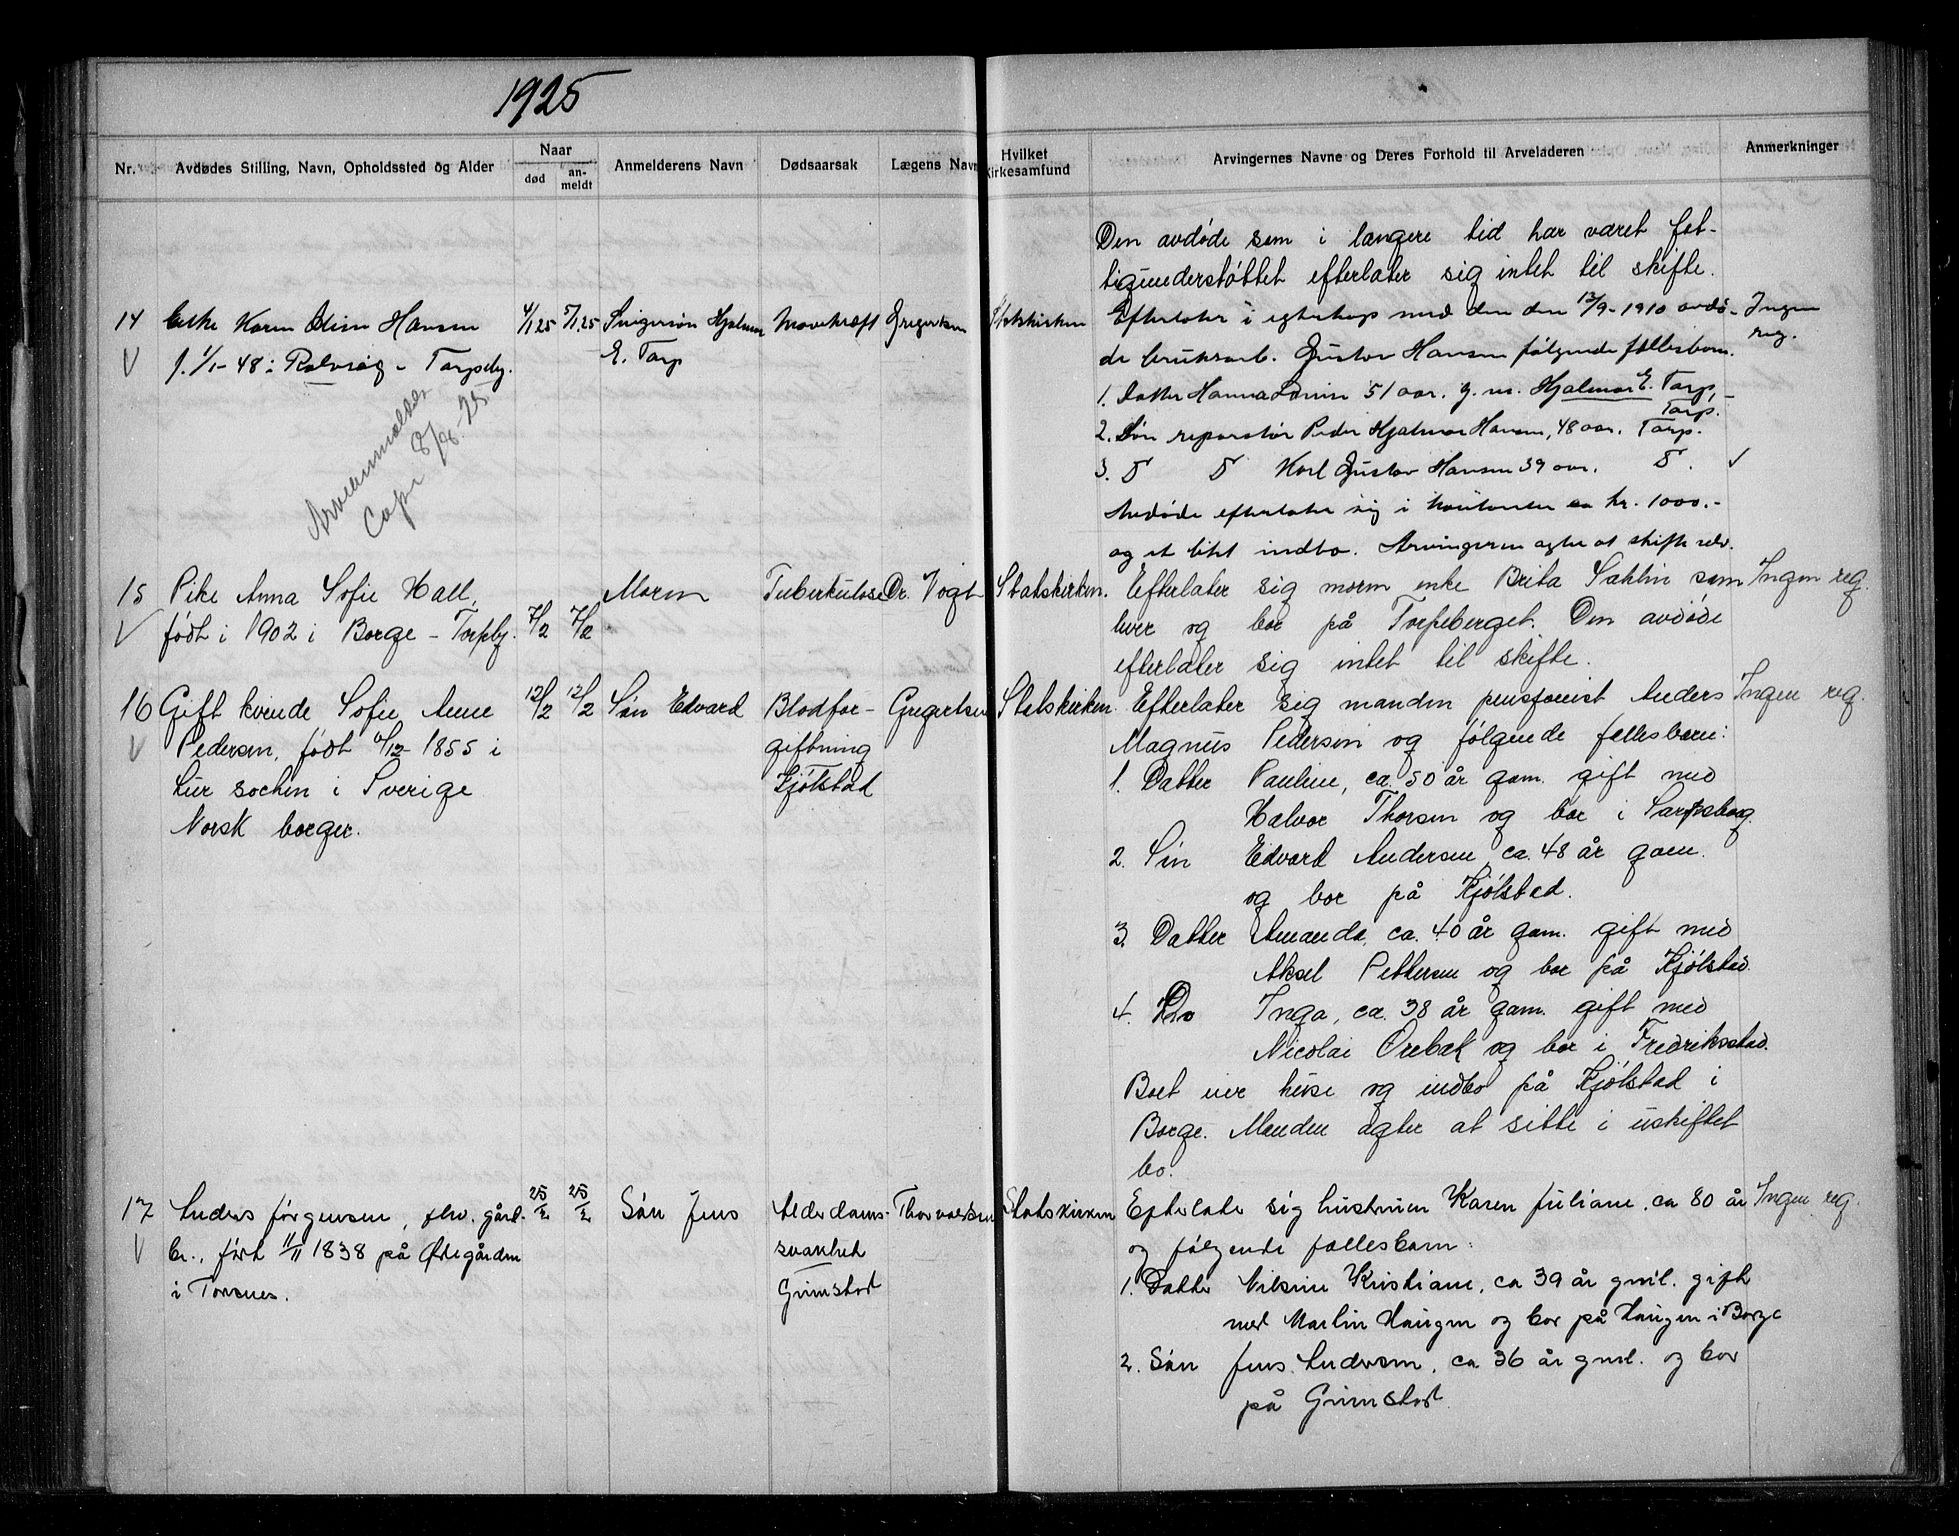 1925
Nr.
Avdødes Stilling, Navn, Opholdssted og Alder
Naar
død
an-
meldt
Anmelderens Navn
Dødsaarsak
Lægens Navn
Hvilket
Kirkesamfund
Arvingernes Navne og Deres Forhold til Arveladeren
Anmerkninger
Den avdøde som i længere tid har været fat-
tigunderstøttet efterlater sig intet til skifte.
14
Enke Karen Hansen
f. 1/1- 48 i Rolvsøy - Torpeby.
4/1 25
5/1 25
Svigersøn Hjalmar
E. Torp
Mavekræft
Gregertsen
Statskirken
Efterlater i egteskap med den den 13/9-1910 avdø-
de bruksarb. Gustav Hansen følgende fællesbarn.
1. Datter Hanna 51 aar. g. m. Hjalmar E. Torp,
Torp.
2. Søn reparatør Peder Hjalmar Hansen, 48 aar. Torp.
3. D D Karl Gustav Hansen 39 aar. D. ✓
Avdøde efterlater sig i kontanter ca kr. 1000.-
og et litet indbo. Arvingerne agter at skifte selv.
Ingen
reg.
V
Arveanmeldelse
25
15
V
Pike Anna Sofie Hall,
født i 1902 i Borge - Torpeby.
7/2
7/2
Moren
Tuberkulose
Dr. Vogt
Statskirken.
Efterlater sig moren enke Brita Sahlin som
lever og bor på Torpeberget. Den avdøde
efterlater sig intet til skifte.
Ingen reg.
16
V
Gift kvinde Sofie Anne
Pedersen, født 6/12- 1855 i
Lur sochen i Sverige
Norsk borger.
12/2
12/2
Søn Edvard
Blodfor-
giftning
Kjølstad
Gregertsen
Statskirken.
Efterlater sig manden pensjonist Anders
Magnus Pedersen og følgende fællesbarn:
1. Datter Pauline, ca. 50 år gam. gift med
Halvor Thorsen og bor i Sarpsborg.
2. Søn Edvard Andersen ca. 48 år gam.
og bor på Kjølstad.
3. Datter Amanda, ca. 40 år gam. gift med
Aksel Pettersen og bor på Kjølstad.
4. Do Inga, ca. 38 år gam. gift med
Nicolai Orebæk og bor i Fredriksstad.
Boet eier huse og indbo på Kjølstad i
Borge. Manden agter at sitte i uskiftet
bo.
Ingen reg.
17
V
Anders Jørgensen, fhv. gård-
br., født 11/11 1838 på Ødegården
i Torsnes.
25/2
25/2
Søn Jens
Alderdoms-
svakhet
Grimstad
Thorvaldsen
Statskirken
Efterlater sig hustruen Karen Juliane, ca 80 år
og følgende fællesbarn:
1. Datter Nilsine Kristiane, ca 39 år gml. gift
med Martin Haugen og bor på Haugen i Borge
2. Søn Jens Andersen, ca 36 år gml. og bor
på Grimstad
Ingen reg.